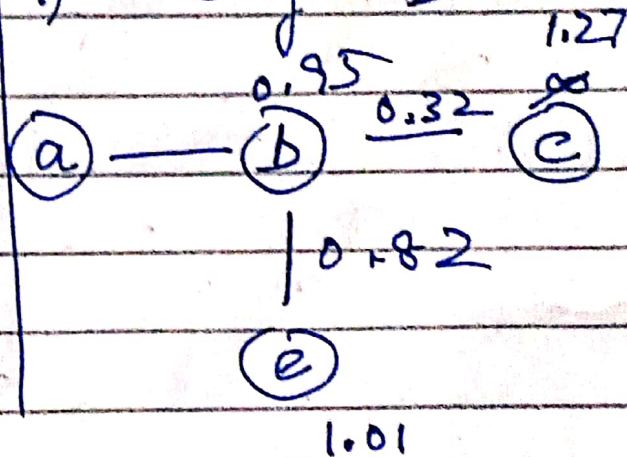 1.27
0.95
0.32
∞
a
b
c
0.82
e
1.01